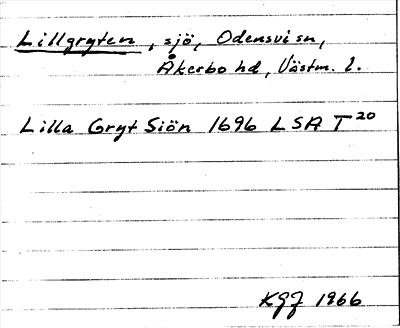 Lillgryten, sjö, Odensvi sn,
Åkerbo hd, Västm. l.
Lilla Gryt Siön 1696 LSA T 20
KGJ 1966